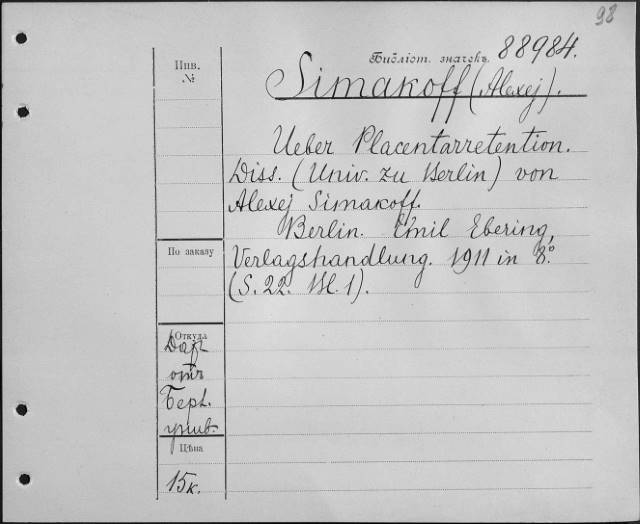 98
Библіот. значекъ 88984.
Инв.
№
Simakoff (Alexej).
Ueber Placentarretention.
Diss. (Univ. zu Berlin) von
Alexej Simakoff.
Berlin. Emil Ebering,
По заказу
Verlagshandlung. 1911 in 8º.
(S. 22. Bl. 1).
Откуда
Даръ
отъ
Берл.
унив.
Цѣна
15к.